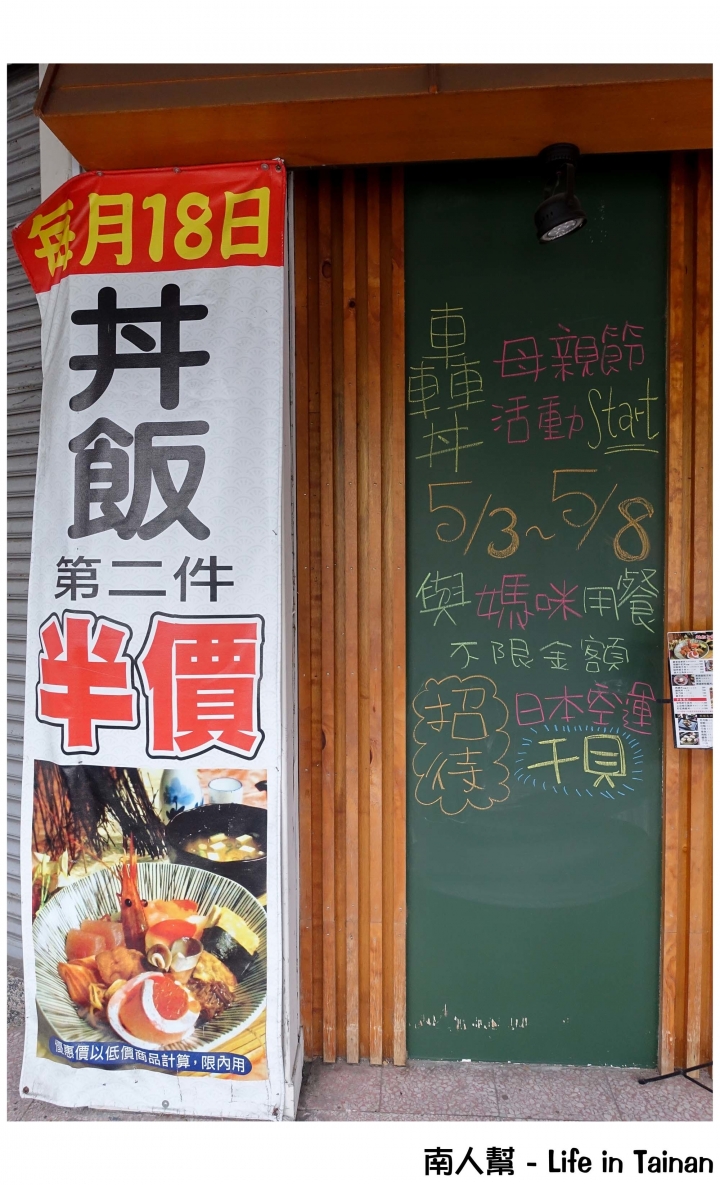 每月18日
丼飯
第二件
半價
優惠價以低價商品計算，限內用
轟丼
母親節
活動Start
5/3~5/8
與媽咪用餐
不限金額
招待
日本空運
干貝
南人幫 - Life in Tainan